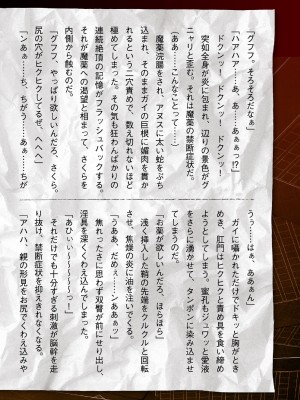 「グフフ。そろそろだなぁ」
「ハアハア……あ、あぁぁっ!?」
ドクンッ! ドクンッ! ドクンッ!
突如全身が炎に包まれ、辺りの景色がグ
ニャリと歪む。それは魔薬の禁断症状だ。
(ああ……こんなことって……)
魔薬浣腸をされ、アヌスに太い蛇をぶち
込まれ、そのままガイの巨根に媚肉を貫か
れるという二穴責めで、数え切れないほど
極めてしまった。その気も狂わんばかりの
連続絶頂の記憶がフラッシュバックする。
それが魔薬への渇望と相まって、さくらを
内側から蝕むのだ。
「グフフ、やっぱり欲しいんだろ、さくら。
尻の穴がヒクヒクしてるぜ、へへへ」
「ンあぁ……ち、ちがう……あぁ……ちが
うぅ……はぁ、ああぁん」
ガイに囁かれただけでドキッと胸がとき
めき、肛門はヒクヒクと責め具を食い締め
ようとしてしまう。蜜孔もジュワッと愛液
をさらに湧かせて、タンポンに染み込ませ
てしまうのだ。
「お薬が欲しいんだろ、ほらほら」
浅く挿入した鞘の先端をクルクルと回転
させ、焦燥の炎に油を注いでくる。
「うああ、だめぇ……ンああぁッ」
焦れったさに思わず双臀が前にせり出し、
淫具を深くくわえ込んでしまった。
「あひぃぃ~~~~~~っ!」
それだけでも十分すぎる刺激が脳幹を走
り抜け、禁断症状を抑えきれなくなる。
「アハハ、親の形見をお尻でくわえ込みや